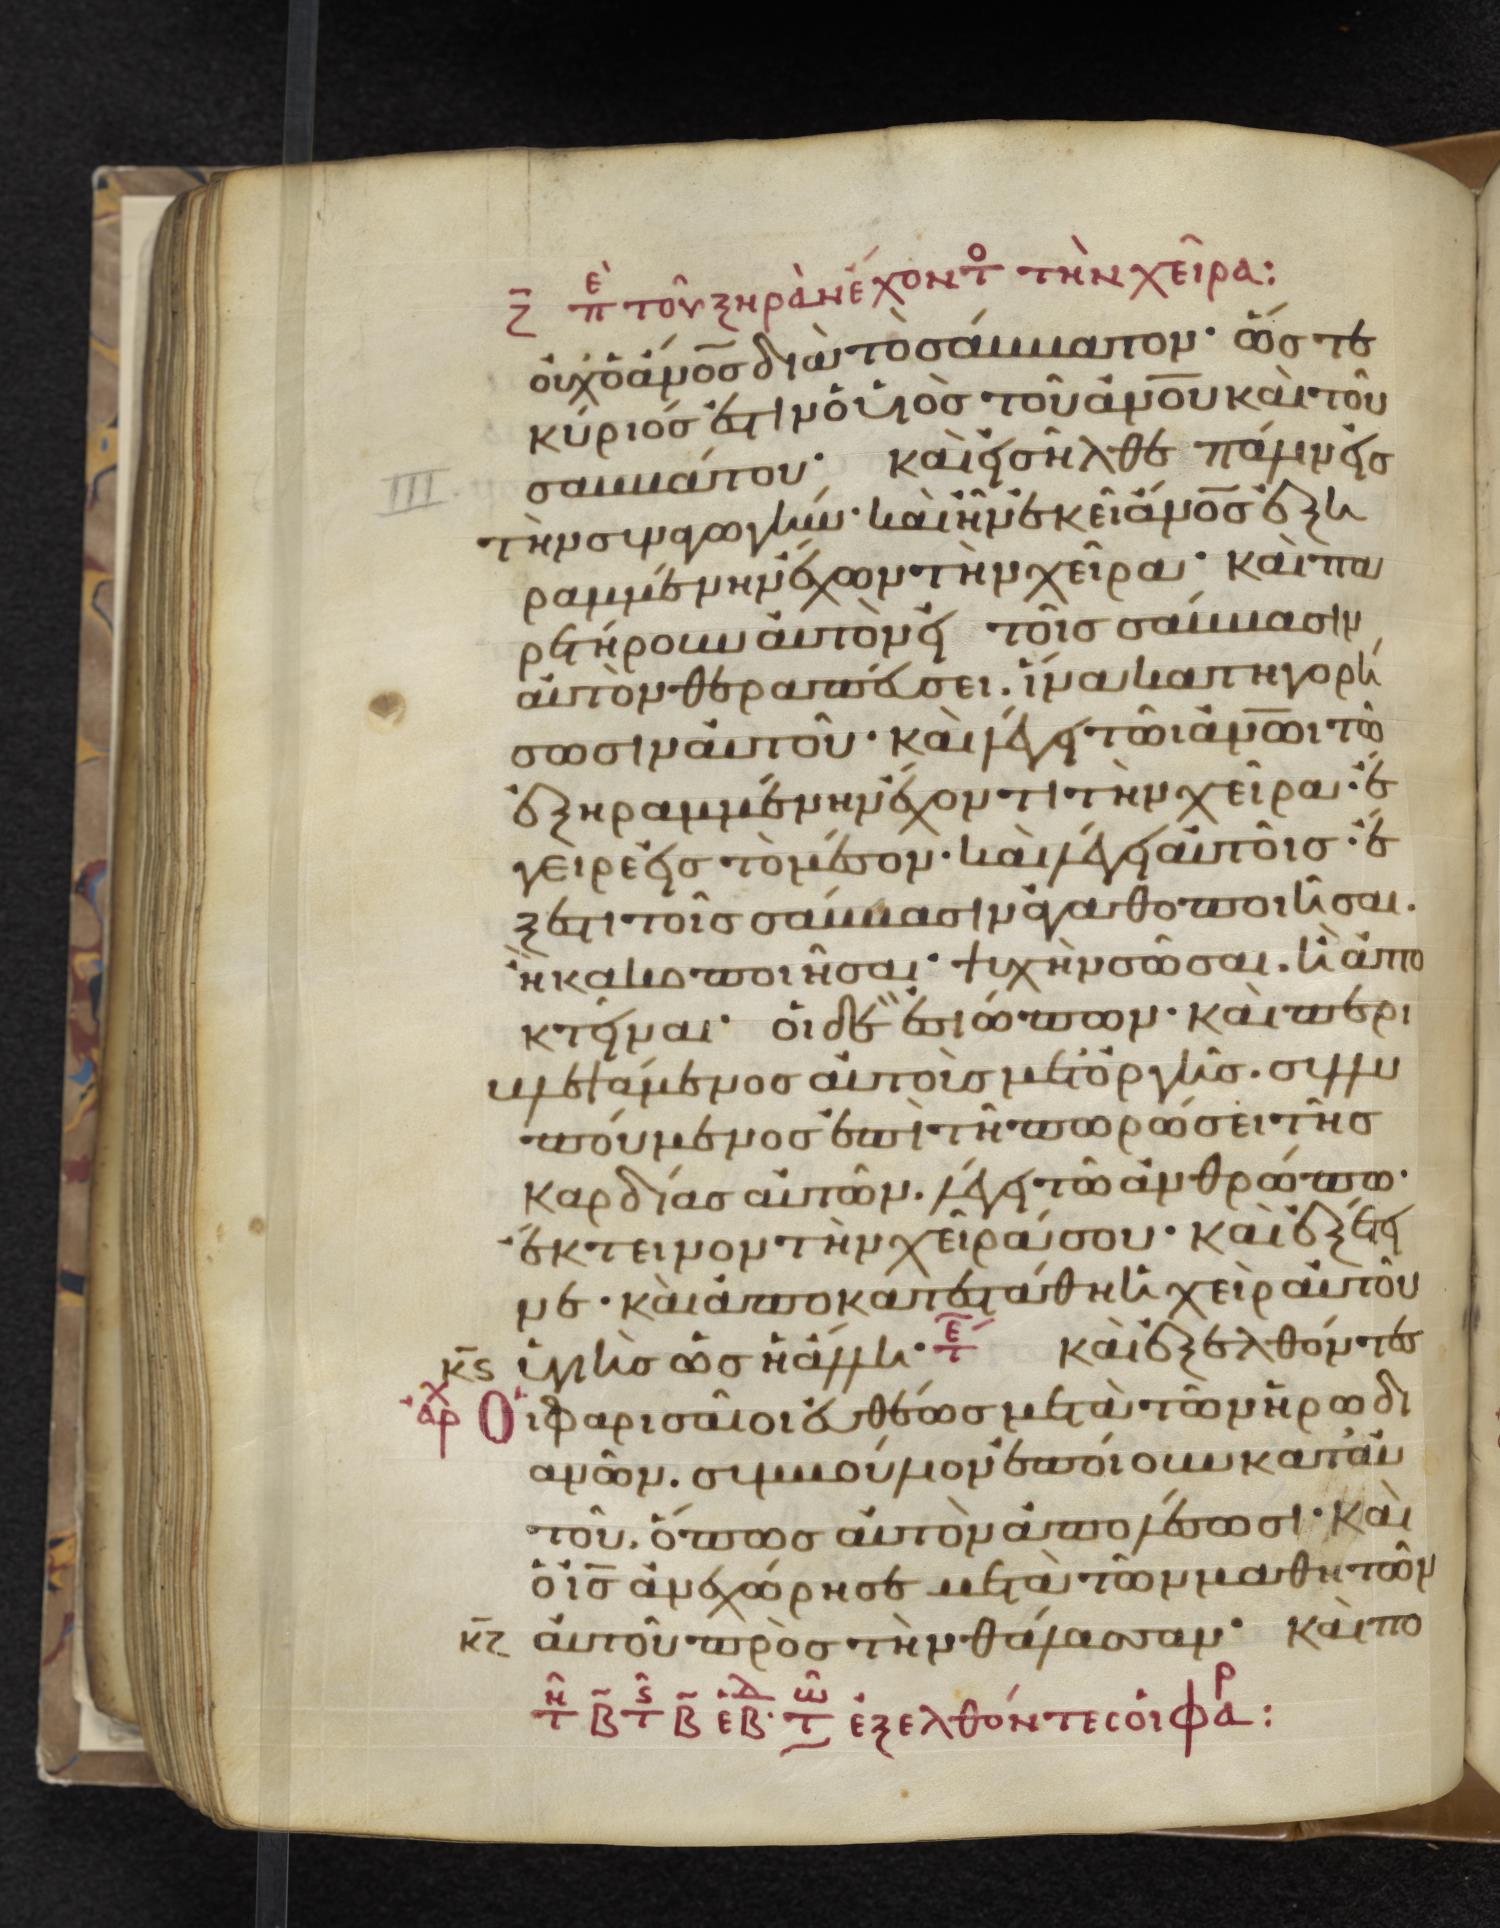 ζ̄ ἐπ τοῦ ξηρὰν ἔχοντο τὴν χεῖρα:
οὐχ ὁ ἄν̅ο̅σ̅ διὰ τὸ σάββατον· ὥστε
κύριός ἐστιν ὁ υἱὸσ τοῦ ἀν̅ο̅υ̅ καὶ τοῦ
σαββάτου· καὶ εἰσῆλθε πάλιν εἰσ
III.
τὴν συναγωγήν· καὶ ἦν ἐκεῖ ἄν̅ο̅σ̅ ἐξη
ραμμένην ἔχων τὴν χεῖρα· καὶ πα
ρετήρουν αὐτὸν εἰ τοῖσ σάββασιν
αὐτὸν θεραπεύσει. ἵνα κατηγορή
σωσιν αὐτοῦ· καὶ λέγει τῶι ἀν̅ω̅ι τῶ
ἐξηραμμένην ἔχοντι τὴν χεῖρα· ἔ
γειρε εἰσ τὸ μέσον· καὶ λέγει αὐτοῖσ· ἔ
ξεστι τοῖσ σάββασιν ἀγαθοποιῆσαι.
ἢ κακοποιῆσαι· ψυχὴν σῶσαι. ἢ ἀπο
κτεῖναι· οἱ δὲ ἐσιώπων· καὶ περι
βλεψάμενοσ αὐτοὺσ μετ᾽ ὀργῆσ. συλλυ
πούμενοσ ἐπὶ τῆ πωρώσει τῆσ
καρδίασ αὐτῶν. λέγει τῶ ἀνθρώπω·
ἔκτεινον τὴν χεῖρά σου· καὶ ἐξέτει
νε· καὶ ἀποκατεστάθη ἡ χεὶρ αὐτοῦ
κ̄ς ὑγιὴσ ὡσ ἡ ἄλλη· ετ καὶ ἐξελθόντεσ
ἀρχ Οἱ φαρισαῖοι εὐθέωσ μετὰ τῶν ἡρωδι
ανῶν. συμβούλιον ἐποίουν κατ᾽ αὐ
τοῦ. ὅπωσ αὐτὸν ἀπολέσωσι· καὶ
ὁ ι̅σ̅ ἀνεχώρησε μετὰ τῶν μαθητῶν
κ̄ζ αὐτοῦ πρὸσ τὴν θάλασσαν· καὶ πο
τη β̄ τς β̄ ἑβδ· τω ἐξελθόντεσ οἱ φαρ: